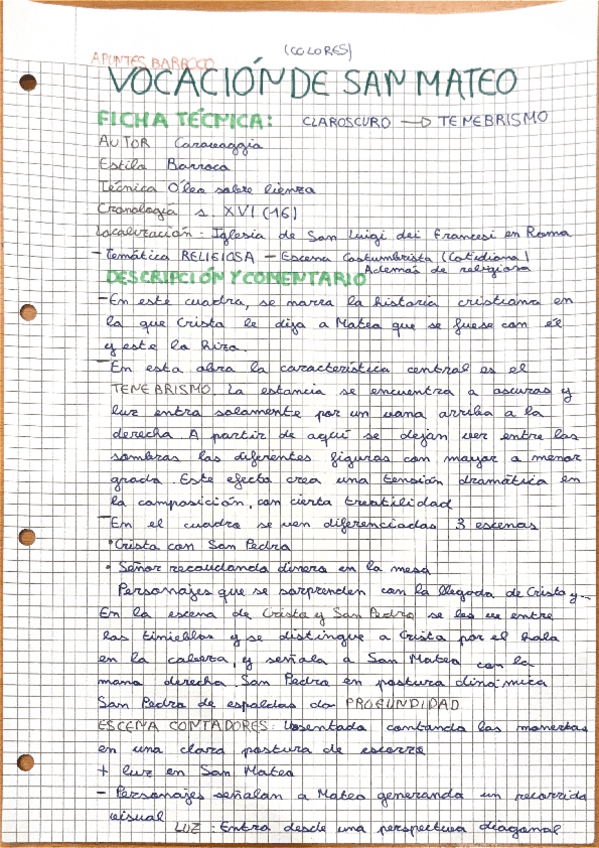 (COLORES)
APUNTES BARROCO
VOCACIÓN DE SAN MATEO
FICHA TÉCNICA: CLAROSCURO → TENEBRISMO
AUTOR Caravaggio
Estilo Barroco
Técnica Óleo sobre lienzo
Cronología s. XVI (-16)
Localización: Iglesia de San Luigi dei Francesi en Roma
- Temática RELIGIOSA - Escena Costumbrista (Cotidiana)
Además de religiosa
DESCRIPCIÓN Y COMENTARIO
- En este cuadro, se narra la historia cristiana en
la que Cristo le dijo a Mateo que se fuese con él
y este lo hizo.
- En esta obra la característica central es el
TENEBRISMO. La estancia se encuentra a oscuras y
luz entra solamente por un vano arriba a la
derecha. A partir de aquí se dejan ver entre las
sombras las diferentes figuras con mayor o menor
grado. Este efecto crea una tensión dramática en
la composición, con cierta treatilidad
- En el cuadro se ven diferenciadas 3 escenas
• Cristo con San Pedro
• Señor recaudando dinero en la mesa
Personajes que se sorprenden con la llegada de Cristo y...
En la escena de Cristo y San Pedro se les ve entre
las tinieblas y se distingue a Cristo por el halo
en la cabeza, y señala a San Mateo con la
mano derecha. San Pedro en postura dinámica
San Pedro de espaldas da PROFUNDIDAD
ESCENA CONTADORES: Uno sentado contando las monedas
en una clara postura de escorzo
+ luz en San Mateo
- Personajes señalan a Mateo generando un recorrido
visual
LUZ: Entra desde una perspectiva diagonal